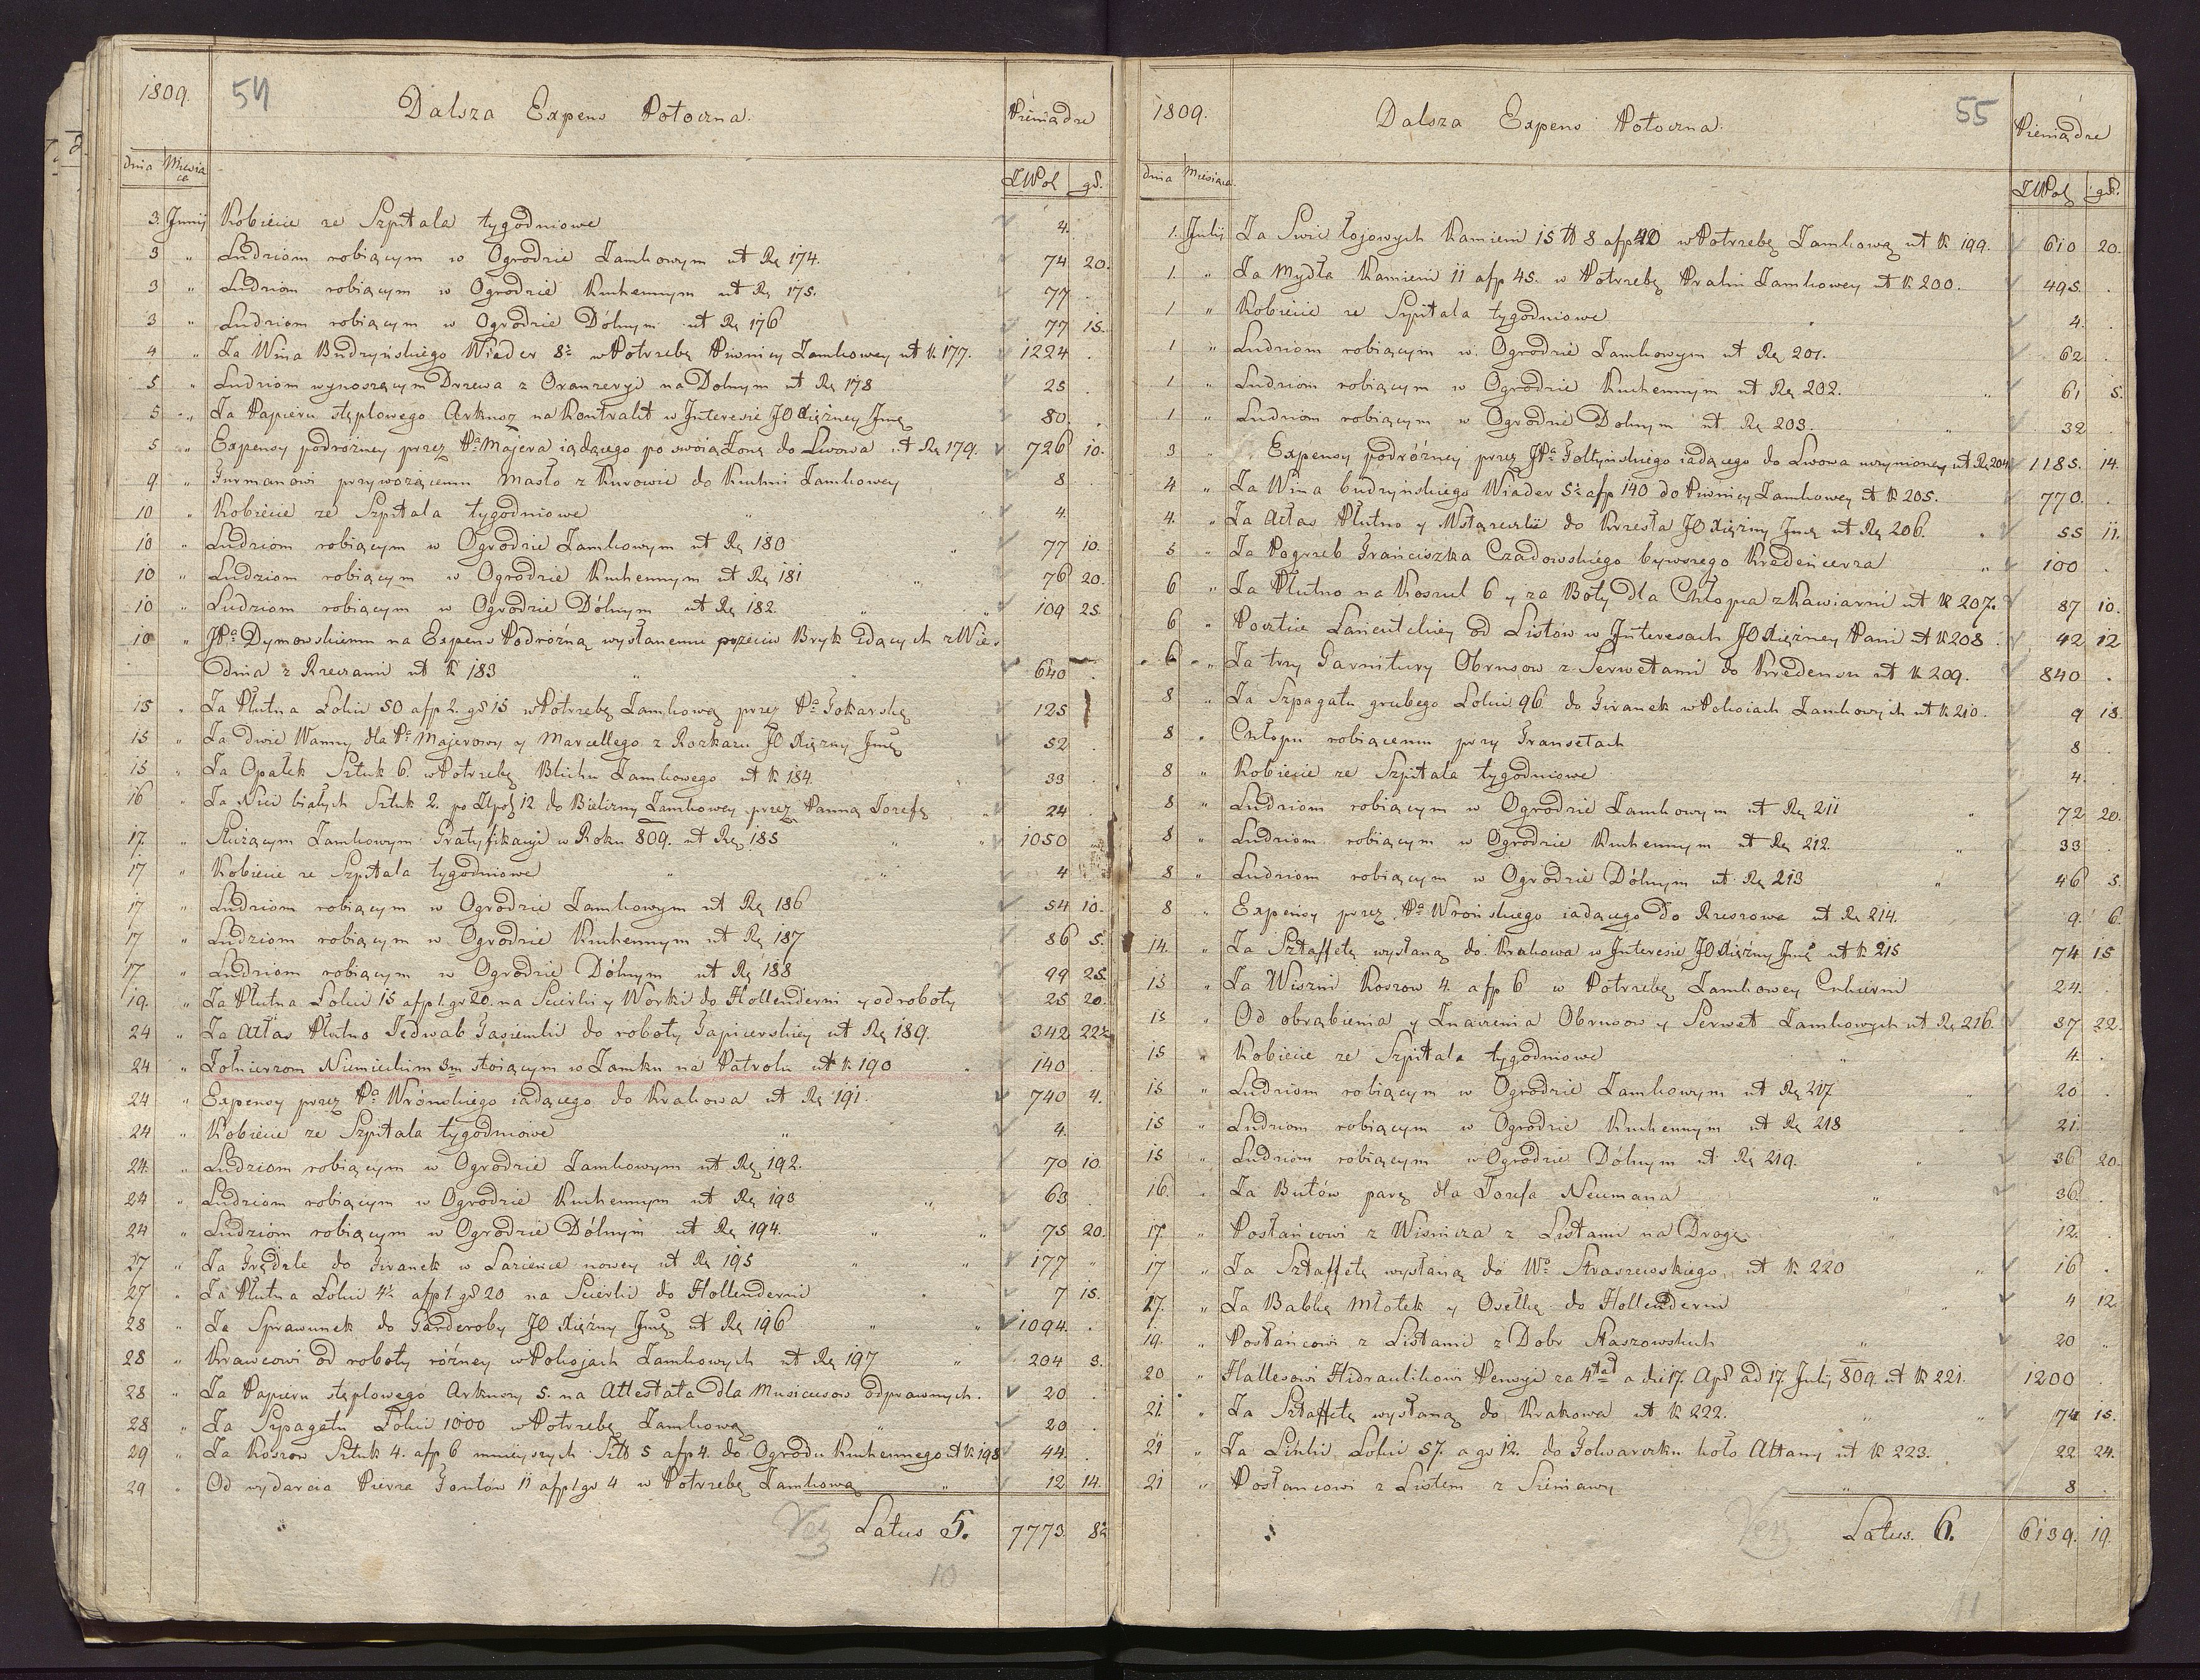 1809. 54 Dalsza Expens Potoczna. Pieniądze
dnia Miesiąca ZłPol gr.
3. Junij Kobiecie ze Szpitala tygodniowe 4.
3 " Ludziom robiącym w Ogrodzie Zamkowym ut Rę 174. 74 20.
3 " Ludziom robiącym w Ogrodzie Kuchennym ut Rę 175. 77 .
3 " Ludziom robiącym w Ogrodzie Dólnym ut Rę 176 77 15.
4 " Za Wina Budzyńskiego Wiader 8½ w Potrzebę Piwnicy Zamkowey ut K 177. 1224 .
5 " Ludziom wynoszącym Drzewa z Oranzeryi na Dolnym ut Rę 178 25 .
5 " Za Papieru stęplowego Arkusz na Kontrakt w Interesie JO Xiężney Jmę 80. .
5 " Expensy podrózney przez Pa Majera iadącego po swoią Zonę do Lwowa ut Rę 179. 726 10.
9 " Furmanowi przywożącemu Masło z Kurowic do Kuchni Zamkowey 8 .
10 " Kobiecie ze Szpitala tygodniowe 4. .
10 " Ludziom robiącym w Ogrodzie Zamkowym ut Rę 180 77 10.
10 " Ludziom robiącym w Ogrodzie Kuchennym ut Rę 181 76 20.
10 " Ludziom robiącym w Ogrodzie Dólnym ut Rę 182. 109 25.
10 " JPa Dymowskiemu na Expens Podróżną wysłanemu przeciw Bryk idących z Wie-
dnia z Rzeczami ut K 183 640 .
15 " Za Płutna Łokci 50 afp 2. gr 15 w Potrzebę Zamkową przez Pa Tokarską 125
15 " Za dwie Wanny dla Pi Majerowy y Marcellego z Rozkazu JO Xiężny Jmę 52 .
15 " Za Opałek Sztuk 6. w Potrzebę Blichu Zamkowego ut K 184. 33 .
16 " Za Nici białych Sztuk 2. po Złpol 12 do Bielizny Zamkowey przez Pannę Jozefę 24 .
17. " Służącym Zamkowym Gratyfikacyi w Roku 809. ut Rę 185 1050
17 " Kobiecie ze Szpitala tygodniowe 4
17 " Ludziom robiącym w Ogrodzie Zamkowym ut Rę 186 54 10.
17 " Ludziom robiącym w Ogrodzie Kuchennym ut Rę 187 86 5.
17 " Ludziom robiącym w Ogrodzie Dólnym ut Rę 188 99 25.
19. " Za Płutna Łokci 15 afp 1. gr 20. na Scierki y Worki do Hollenderni y od roboty 25 20.
24 " Za Atłas Płutno Jedwab Tasiemki do roboty Tapicerskiey ut Rę 189. 342 22½
24 " Żołnierzom Niemieckim 3m stoiącym w Zamku na Patrolu ut K 190 140
24 " Expensy przez Pa Wrónskiego iadącego do Krakowa ut Rę 191. 740 4.
24 " Kobiecie ze Szpitala tygodniowe 4. .
24. " Ludziom robiącym w Ogrodzie Zamkowym ut Rę 192. 70 10
24 " Ludziom robiącym w Ogrodzie Kuchennym ut Rę 193 63 .
24 " Ludziom robiącym w Ogrodzie Dólnym ut Rę 194. 75 20.
27 " Za Frędzle do Firanek w Łazience nowey ut Rę 195 177 "
27 " Za Płutna Łokci 4½ afp 1. gr 20 na Scierki do Hollenderni 7 15.
28 " Za Sprawunek do Garderoby JO Xiężny Jmę ut Rę 196 1094. .
28 " Krawcowi od roboty rózney w Pokojach Zamkowych ut Rę 197 204 3.
28 " Za Papieru stęplowego Arkuszy 5. na Attestata dla Musicusow odprawnych. 20 .
28 " Za Szpagatu Łokci 1000 w Potrzebę Zamkową 20 .
29 " Za Koszow Sztuk 4. afp 6 mnieyszych Szt 5 afp 4. do Ogrodu Kuchennego ut K 198 44. .
29 " Od wydarcia Pierza Fontów 11 afp 1 gr 4 w Potrzebę Zamkową 12 14.
Latus 5. 7773 8½
10
1809. Dalsza Expens Potoczna. 55 Pieniądze
dnia Miesiąca ZłPol gr.
1. Julij Za Swic łojowych Kamieni 15 ℔ 8 afp 40 w Potrzebę Zamkową ut K 199. 610 20.
1. " Za Mydła Kamieni 11 afp 45. w Potrzebę Pralni Zamkowey ut K 200. 495. .
1 " Kobiecie ze Szpitala tygodniowe 4. .
1 " Ludziom robiącym w Ogrodzie Zamkowym ut Rę 201. 62 .
1 " Ludziom robiącym w Ogrodzie Kuchennym ut Rę 202. 61 5.
1 " Ludziom robiącym w Ogrodzie Dolnym ut Rę 203. 32
3 " Expensy podróżney przez JPa Foltyńskiego iadącego do Lwowa uczynioney ut Rę 204 1185. 14.
4 " Za Wina budzyńskiego Wiader 5½ afp 140 do Piwnicy Zamkowey ut K 205. 770. .
4. " Za Atłas Płutno y Wstążeczki do Krzesła JO Xiężny Jmę ut Rę 206. 55 11.
5 " Za Pogrzeb Franciszka Czadowskiego bywszego Kredencerza 100 .
6 " Za Płutno na Koszul 6 y za Boty dla Chłopca z Kawiarni ut K 207. 87 10.
6 " Poczcie Łancutckiey od Listów w Interesach JO Xiężney Pani ut K 208 42 12
6 " Za trzy Garnitury Obrusow z Serwetami do Kredensu ut K 209. 840 .
8 " Za Szpagatu grubego Łokci 96 do Firanek w Pokoiach Zamkowych ut K 210. 9 18.
8 " Chłopu robiącemu przy Transetach 8 .
8 " Kobiecie ze Szpitala tygodniowe 4. .
8 " Ludziom robiącym w Ogrodzie Zamkowym ut Rę 211 72 20.
8 " Ludziom robiącym w Ogrodzie Kuchennym ut Rę 212. 33 .
8 " Ludziom robiącym w Ogrodzie Dólnym ut Rę 213 46 5.
8 " Expensy przez Pa Wrońskiego iadącego do Rzeszowa ut Rę 214. 9 6.
14. " Za Sztaffetę wysłaną do Krakowa w Interesie JO Xiężny Jmę ut K 215 74 15
15 " Za Wiszni Koszow 4. afp 6 w Potrzebę Zamkowey Cukierni 24. .
15 " Od obrąbienia y Znaczenia Obrusow y Serwet Zamkowych ut Rę 216. 37 22.
15 " Kobiecie ze Szpitala tygodniowe 4. .
15 " Ludziom robiącym w Ogrodzie Zamkowym ut Rę 217 20 .
15 " Ludziom robiącym w Ogrodzie Kuchennym ut Rę 218 21.
15 " Ludziom robiącym w Ogrodzie Dólnym ut Rę 219. 36 20.
16. " Za Butów parę dla Jozefa Neumana 36 .
17. " Posłańcowi z Wisnicza z Listami na Drogę 12. .
17 " Za Sztaffetę wysłaną do Wo Straszewskiego ut K 220 16 .
17. " Za Babkę Młotek y Osełkę do Hollenderni 4 12.
19. " Posłańcowi z Listami z Dobr Staszowskich 20 "
20 " Hallerowi Hidraulikowi Pensyi za a die 17. Apr ad 17 July 809. ut K 221. 1200 .
21. " Za Sztaffetę wysłaną do Krakowa ut K 222. 74 15.
21 " Za Linki Łokci 57. a gr 12. do Folwarczku koło Altany ut K 223. 22 24.
21 " Posłancowi z Listem z Sieniawy 8 .
Latus. 6. 6139. 19.
11